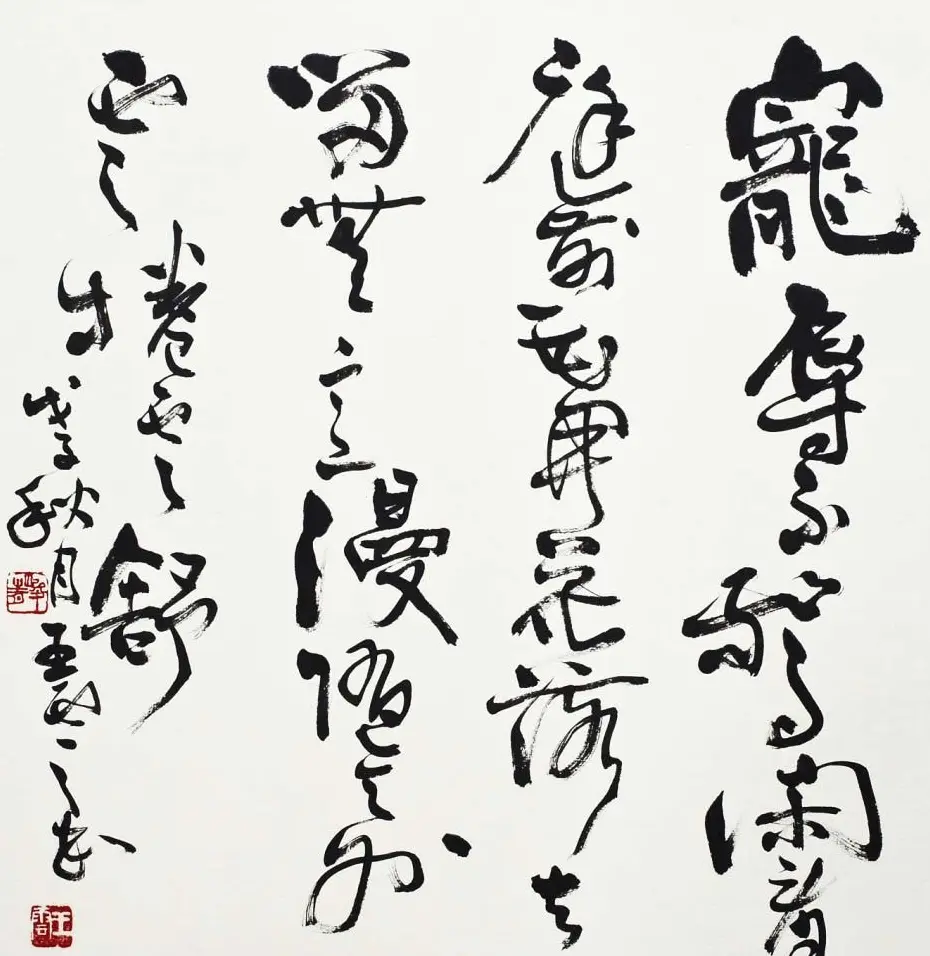 寵辱不驚閑看
庭前花開花落去
留無意漫隨天外
雲卷雲舒
时戊子秋月王雲书
王雲